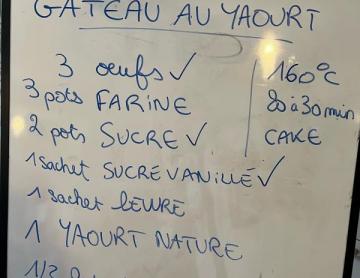 GATEAU AU YAOURT
3 oeufs ✓
3 pots FARINE
2 pots SUCRE ✓
1 sachet SUCRE VANILLÉ ✓
1 sachet LEVRE
1 YAOURT NATURE
1/2
160°C
20 à 30 min
CAKE